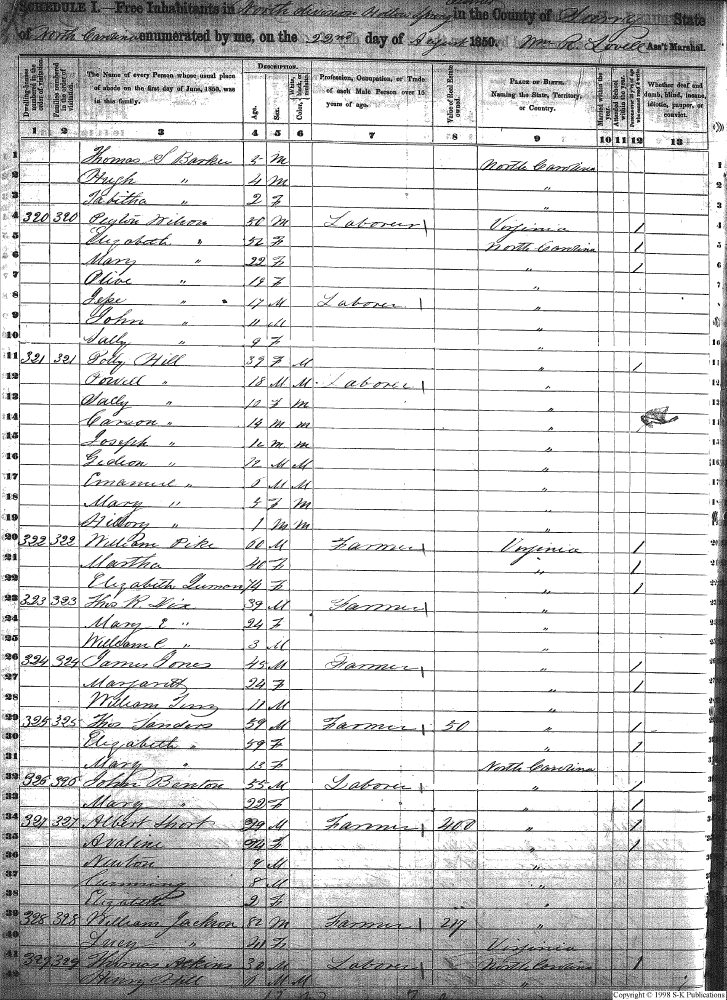 SCHEDULE I.—Free Inhabitants in North division Hollow Spring in the County of Surry State
of North Carolina enumerated by me, on the 22nd day of August 1850. Wm R. Lovell Ass't Marshal.
Dwelling-houses numbered in the order of visitation.
Families numbered in the order of visitation.
The Name of every Person whose usual place of abode on the first day of June, 1850, was in this family.
DESCRIPTION.
Age.
Sex.
Color,
Profession, Occupation, or Trade of each Male Person over 15 years of age.
Value of Real Estate owned.
PLACE OF BIRTH. Naming the State, Territory, or Country.
Married within the year.
Whether deaf and dumb, blind, insane, idiotic, pauper, or convict.
1 2 3 4 5 6 7 8 9 10 11 12 13
1 Thomas S Barker 5 M North Carolina 1
2 Hugh " 4 M " 2
3 Tabitha " 2 F " 3
4 320 320 Peyton Wilson 50 M Laborer Virginia / 4
5 Elizabeth " 52 F North Carolina / 5
6 Mary " 22 F " / 6
7 Olive " 19 F " 7
8 Jesse " 17 M Laborer " 8
9 John " 11 M " 9
10 Sally " 9 F "
11 321 321 Polly Hill 39 F M " / 11
12 Powell " 18 M M Laborer "
13 Sally " F M "
14 Carson " 14 M M "
15 Joseph " M M "
16 Gideon " 12 M M "
17 Emanuel " M M "
18 Mary " 5 F M "
19 " 1 M M "
20 322 322 William Pike 60 M Farmer Virginia /
21 Martha 40 F " /
22 Elizabeth 74 F " /
23 323 323 Thos R. 39 M Farmer "
24 Mary E " 24 F "
25 William C " 3 M "
26 324 324 James Jones 45 M Farmer " /
27 Margarith 24 F " /
28 William 11 M "
29 325 325 Thos Sanders 59 M Farmer 50 " /
30 Elizabeth " 59 F " /
31 Mary " 13 F North Carolina
32 326 326 John Benton 55 M Laborer " /
33 Mary " 22 F " /
34 327 327 Albert Short 29 M Farmer 400 " /
35 Avaline F " /
36 Newton 9 M "
37 8 M "
38 Elizabeth 2 F "
39 328 328 William Jackson 82 M Farmer 217 "
40 Lucy " F Virginia
41 329 329 Thomas Atkins 30 M Laborer North Carolina
42 Henry Hill M M "
Copyright © 1998 S-K Publications